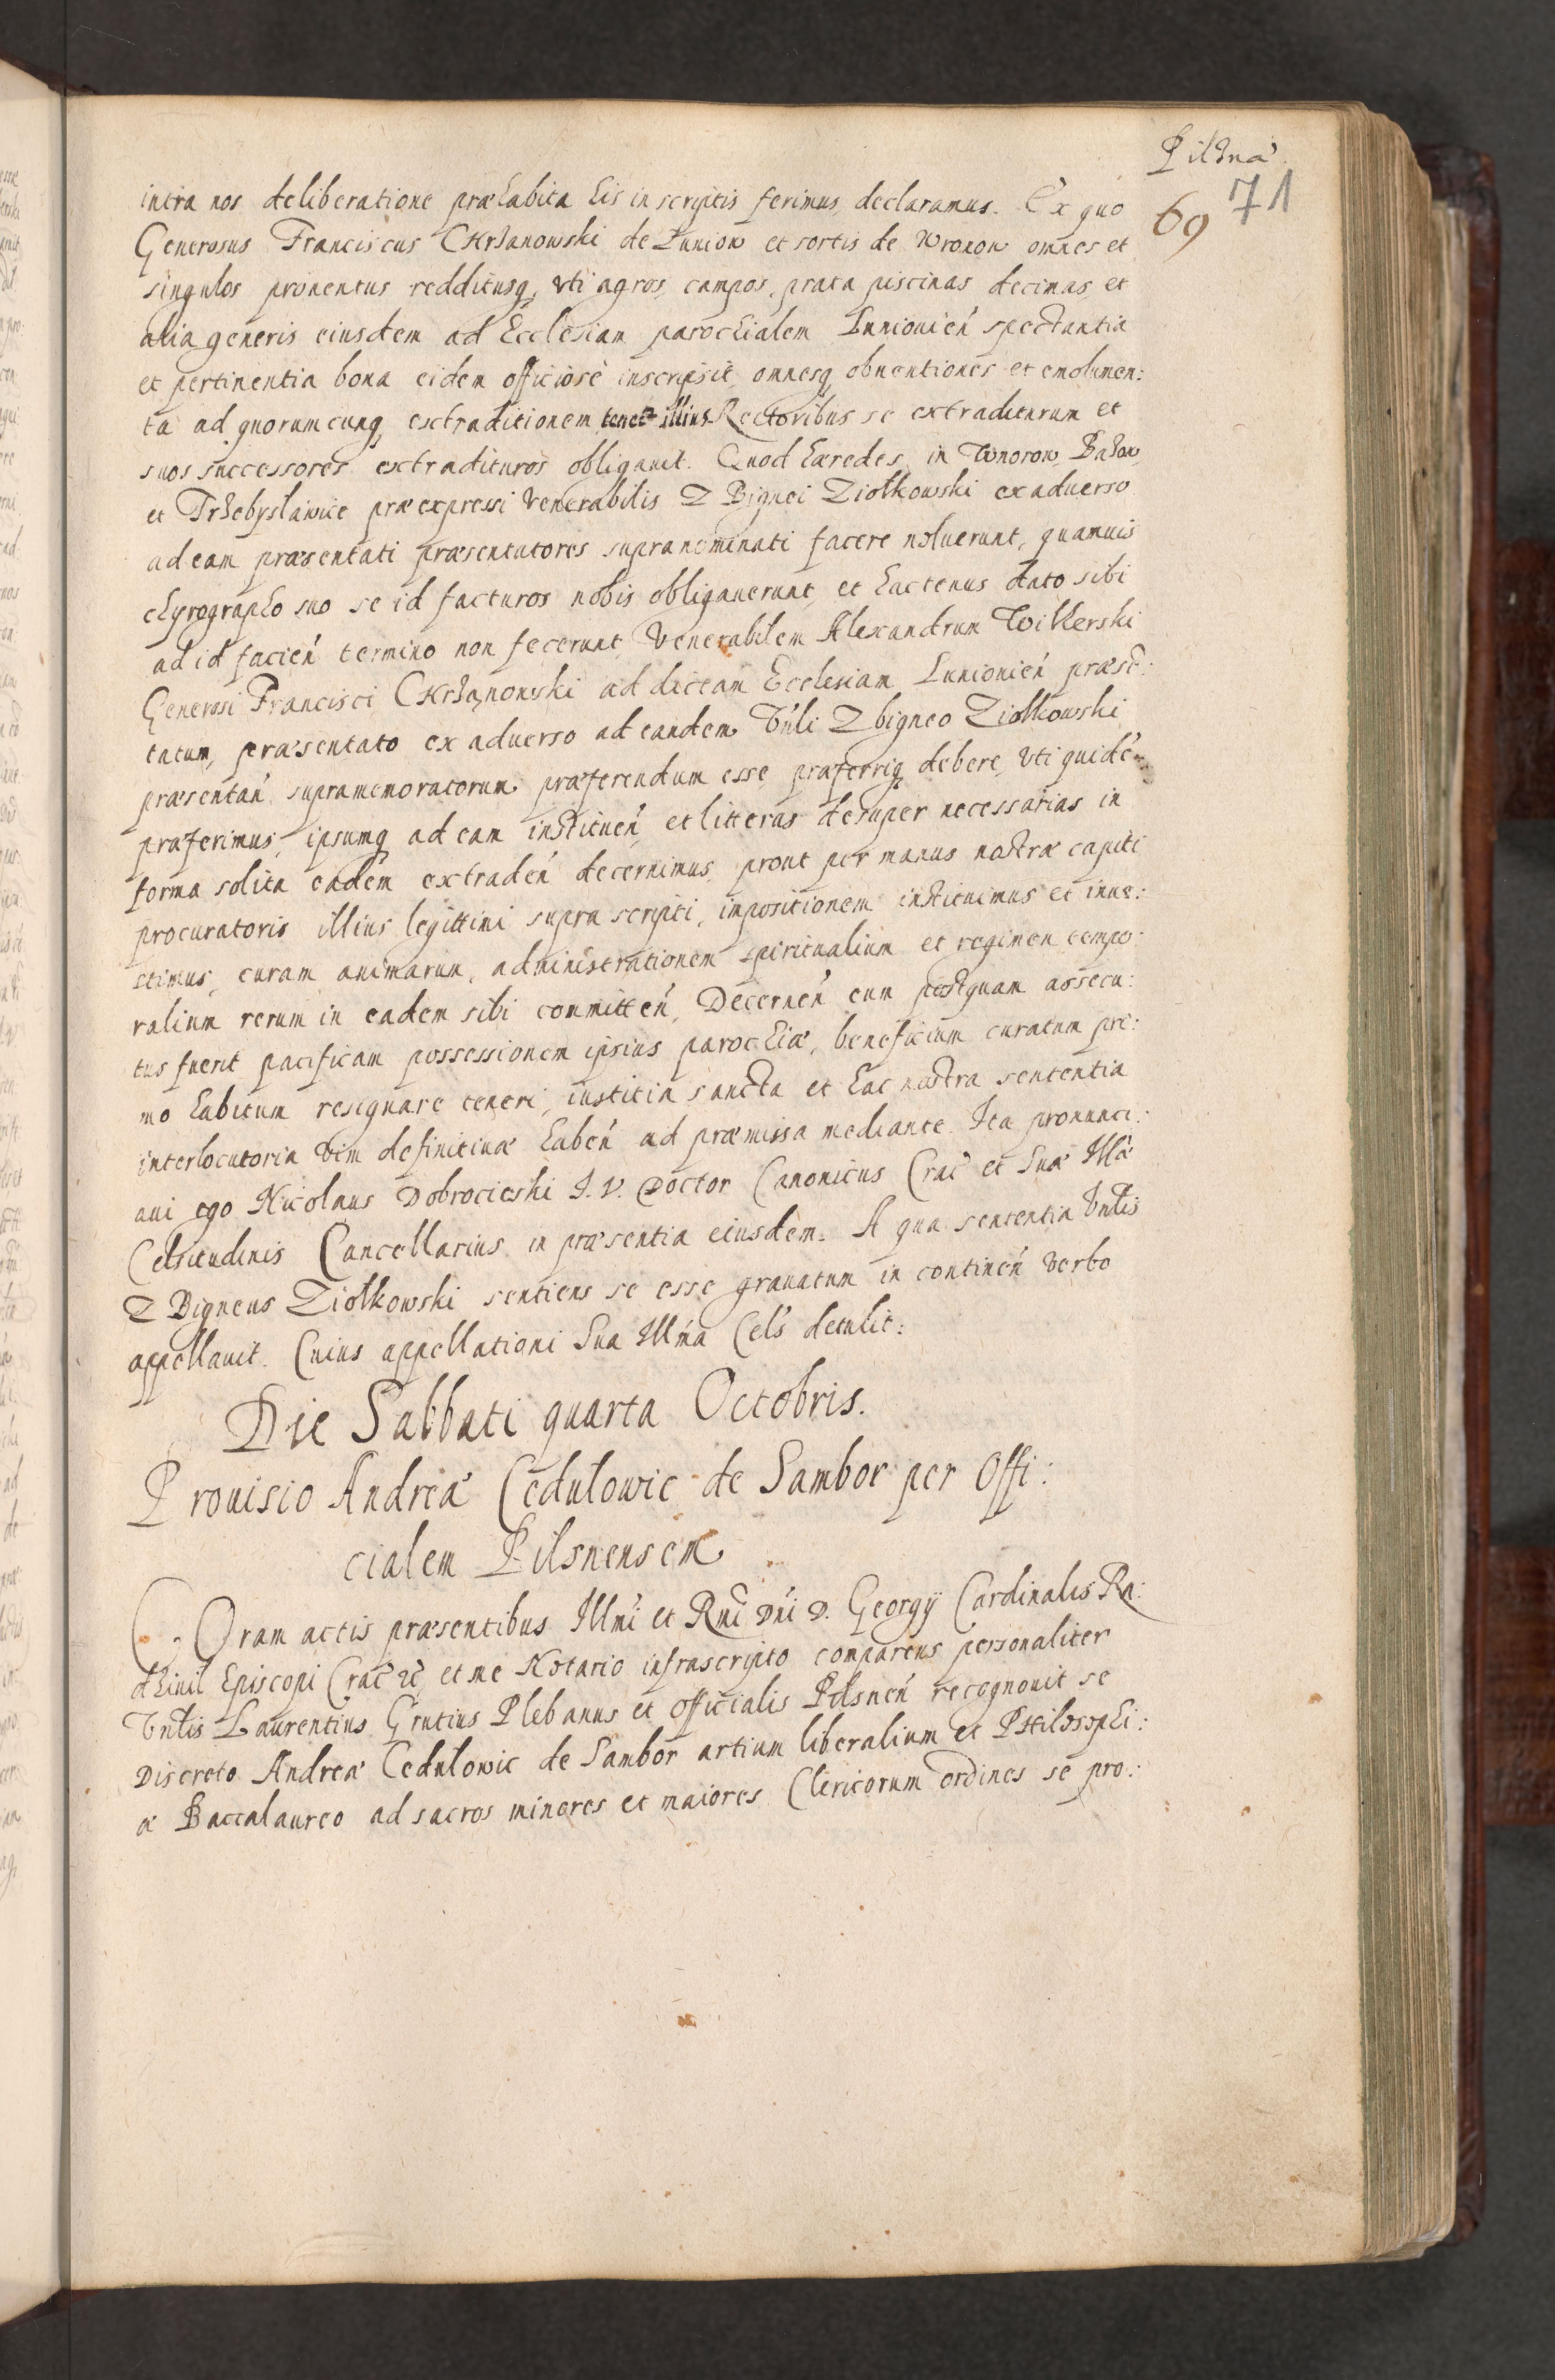 Pilzna
69 71
intra nos deliberatione præhabita his in scriptis ferimus, declaramus. Ex quo
Generosus Franciscus Chrzanowski de Luniow et sortis de Wronow omnes et
singulos prouentus redditusq, vti agros, campos, prata piscinas decimas, et
alia generis eiusdem ad Ecclesiam parochialem Luniouień spectantia
et pertinentia bona eidem officiosè inscripsit, omnesq obuentiones et emolumen:
ta ad quorumcunq extraditionem tenet illius Rectoribus se extraditurum et
suos successores extradituros obligauit. Quod hæredes in Wnorow, Bazow,
et Trzebyslawice præexpressi Venerabilis Z Bignei Ziołkowski ex aduerso
ad eam præsentati præsentatores supranominati facere noluerunt, quamuis
chyrographo suo se id facturos nobis obligauerunt, et hactenus dato sibi
ad id facień termino non fecerunt, Venerabilem Alexandrum Wilkerski
Generosi Francisci Chrzanowski ad dictam Ecclesiam Luniouień præsē:
tatum, præsentato ex aduerso ad eandem Vnli Zbigneo Ziołkowski
præsentań supramemoratorum præferendum esse, præferriq debere, vti quidē
præferimus, ipsumq ad eam institueń, et litteras desuper necessarias in
forma solita eadem extradeń decernimus, prout per manus nostræ capiti
procuratoris illius legittimi supra scripti, impositionem instituimus et inue:
stimus, curam animarum, administrationem spiritualium et regimen tempo:
ralium rerum in eadem sibi committeń, Decerneń eum postquam assecu:
tus fuerit pacificam possessionem ipsius parochiæ, beneficium curatum pri:
mo habitum resignare teneri, iustitia sancta et hac nostra sententia
interlocutoria vim definitiuæ habeń ad præmissa mediante. Ita pronunci:
aui ego Nicolaus Dobrocieski I. V. Doctor Canonicus Crac̄ et Suæ Illæ
Celsitudinis Cancellarius in præsentia eiusdem. A qua sententia Vnlis
Z Bigneus Ziołkowski sentiens se esse grauatum in contineń verbo
appellauit. Cuius appellationi Sua Illma Cels detulit:
Die Sabbati quarta Octobris.
Prouisio Andreæ Cedulowic de Sambor per Offi:
cialem Pilsnensem
Coram actis præsentibus Illmi et Rmi Dni D. Georgij Cardinalis Ra:
dziuil Episcopi Crac̄ zc̄ et me Notario infrascripto comparens personaliter
Vnlis Laurentius Grutius Plebanus et officialis Pilsneń recognouit se
Discreto Andreæ Cedulowic de Sambor artium liberalium et Philosophi:
æ Baccalaureo ad sacros minores et maiores Clericorum ordines se pro: